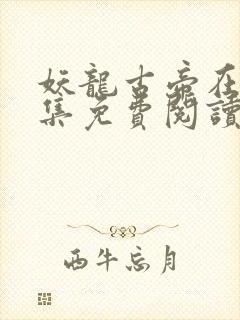 妖龍古帝在
集免費閱讀
西牛忘月